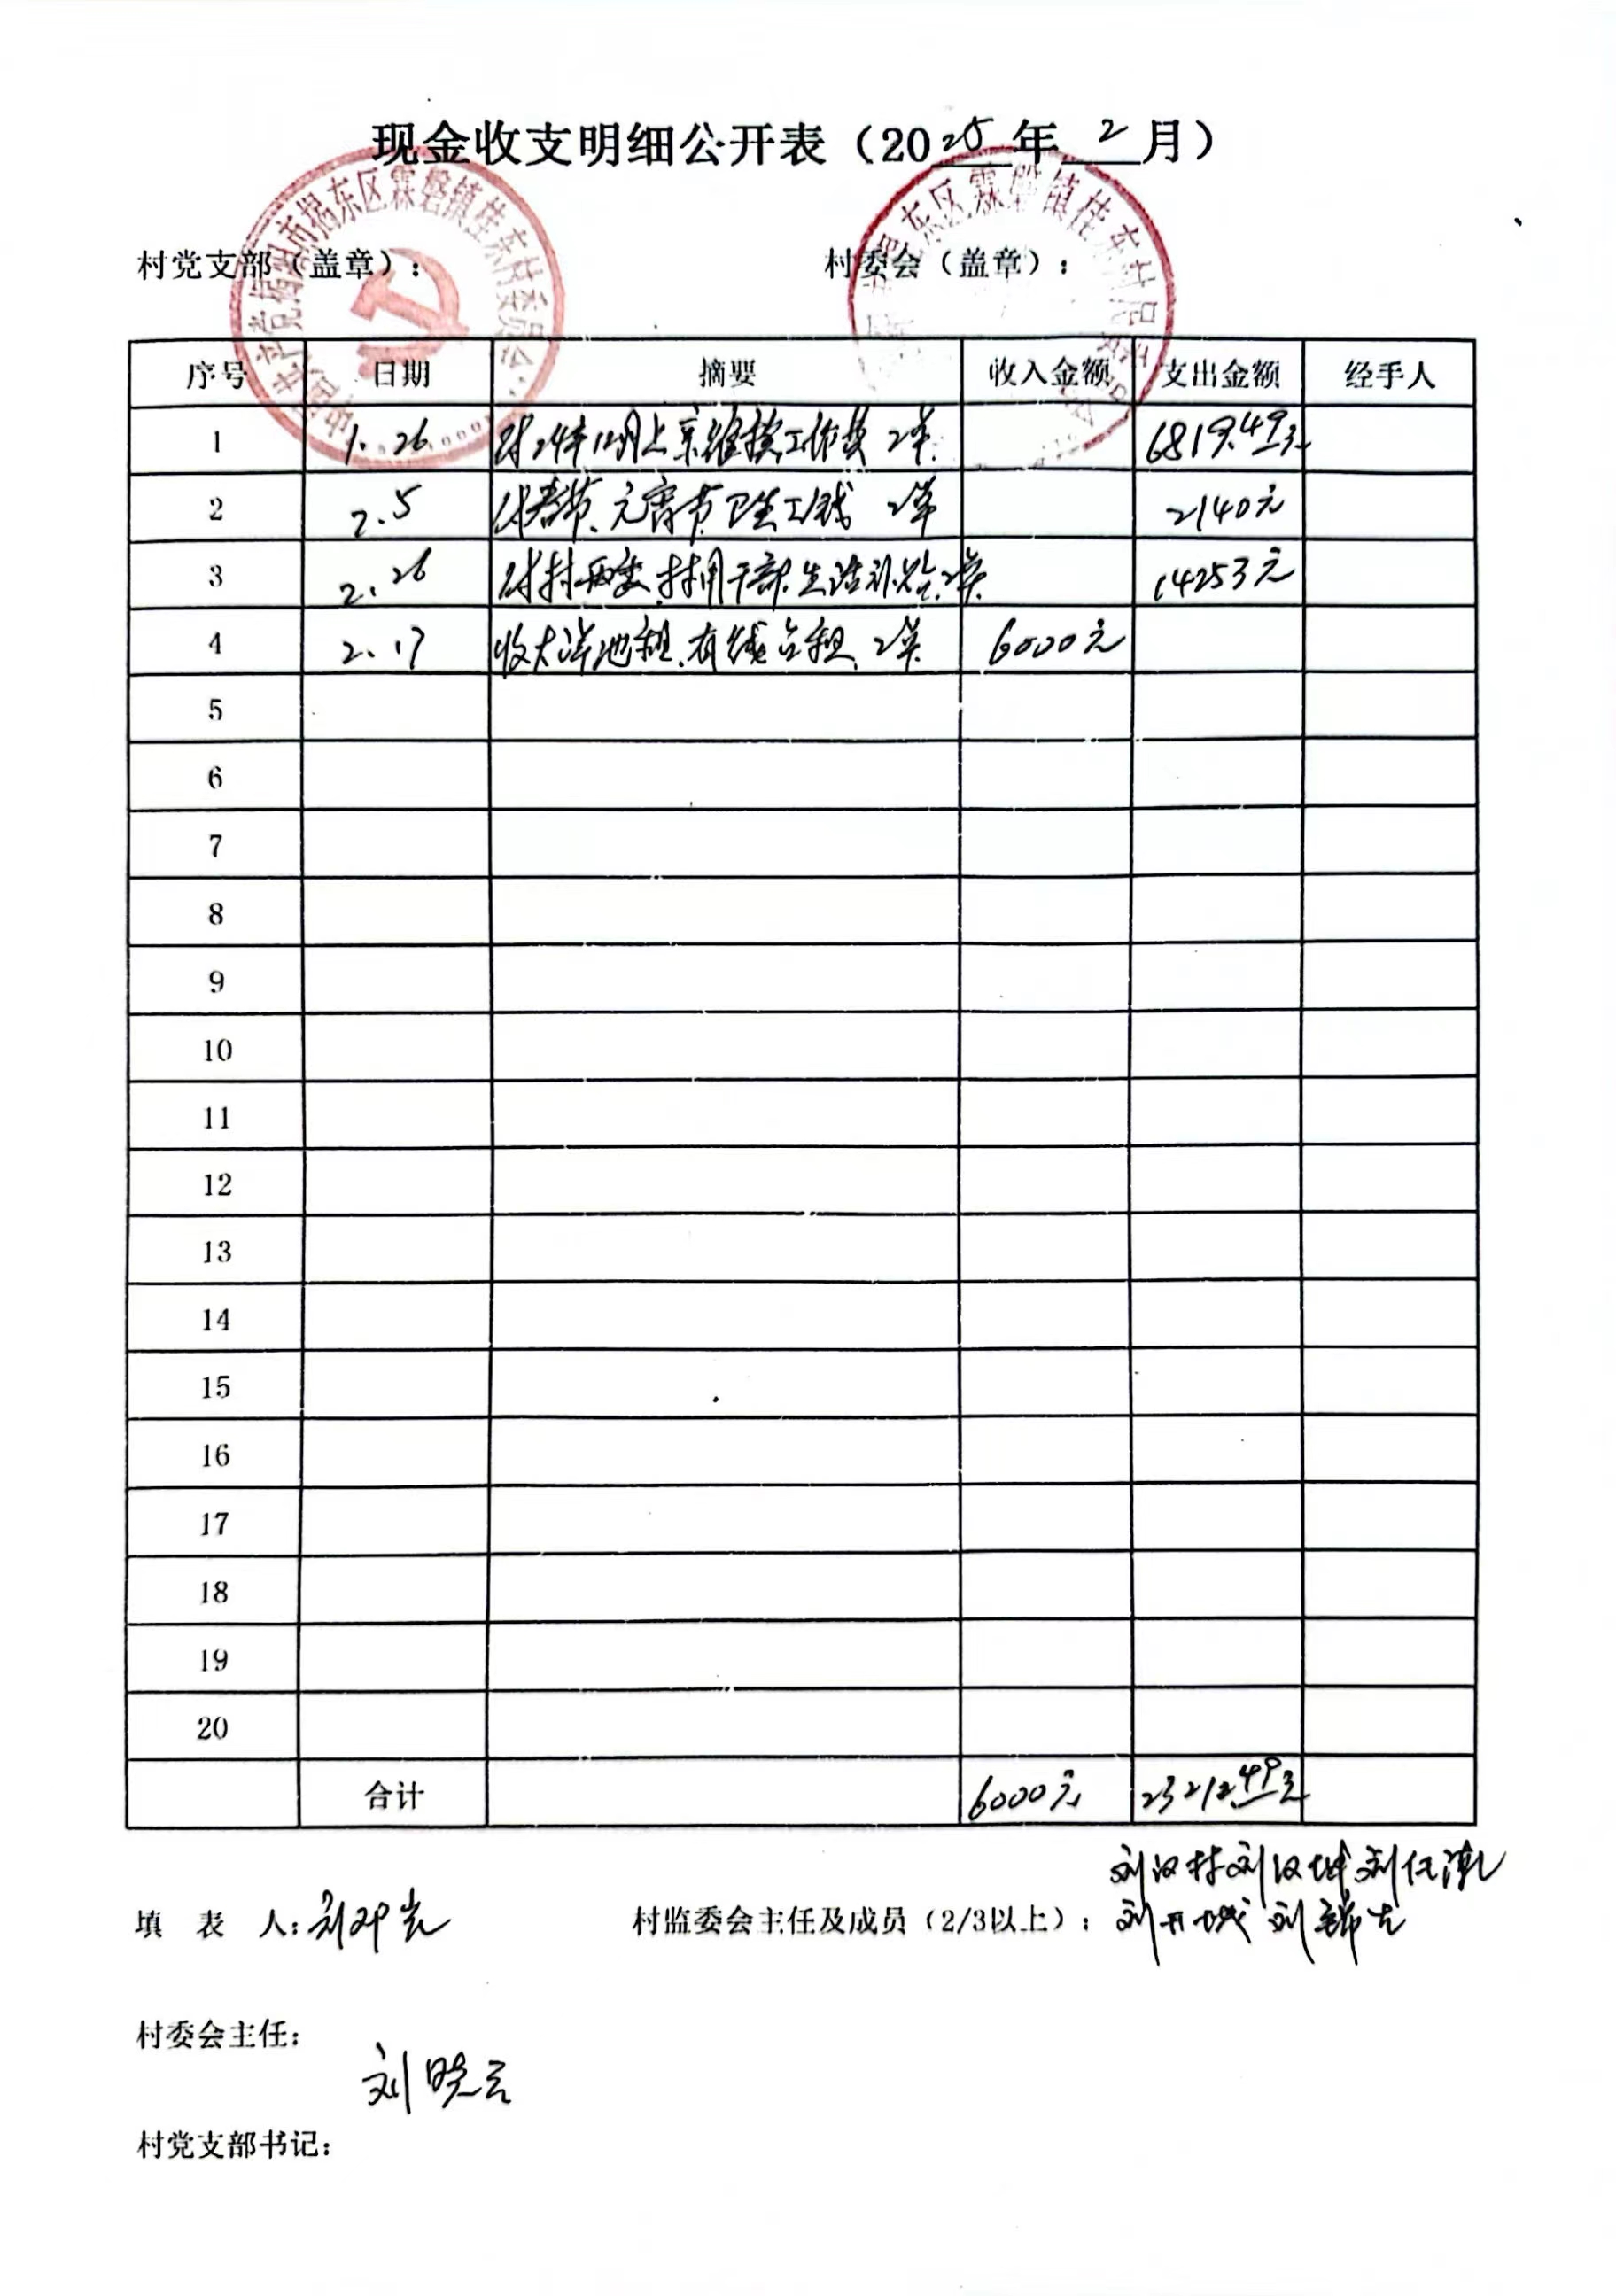 现金收支明细公开表（2025年2月）
村党支部（盖章）： 村委会（盖章）：
序号 日期 摘要 收入金额 支出金额 经手人
1 1.26 付24年12月上京维稳工作费 2单 6819.49元
2 2.5 付春节、元宵节卫生工钱 2单 2140元
3 2.26 付村两委、村用干部生活补贴、2单 14253元
4 2.17 收大洋池租、有线台租、2单 6000元
5
6
7
8
9
10
11
12
13
14
15
16
17
18
19
20
合计 6000元 23212.49元
刘汉村 刘汉城 刘
填 表 人： 刘 村监委会主任及成员（2/3以上）： 刘开城 刘
村委会主任：
刘晓云
村党支部书记：